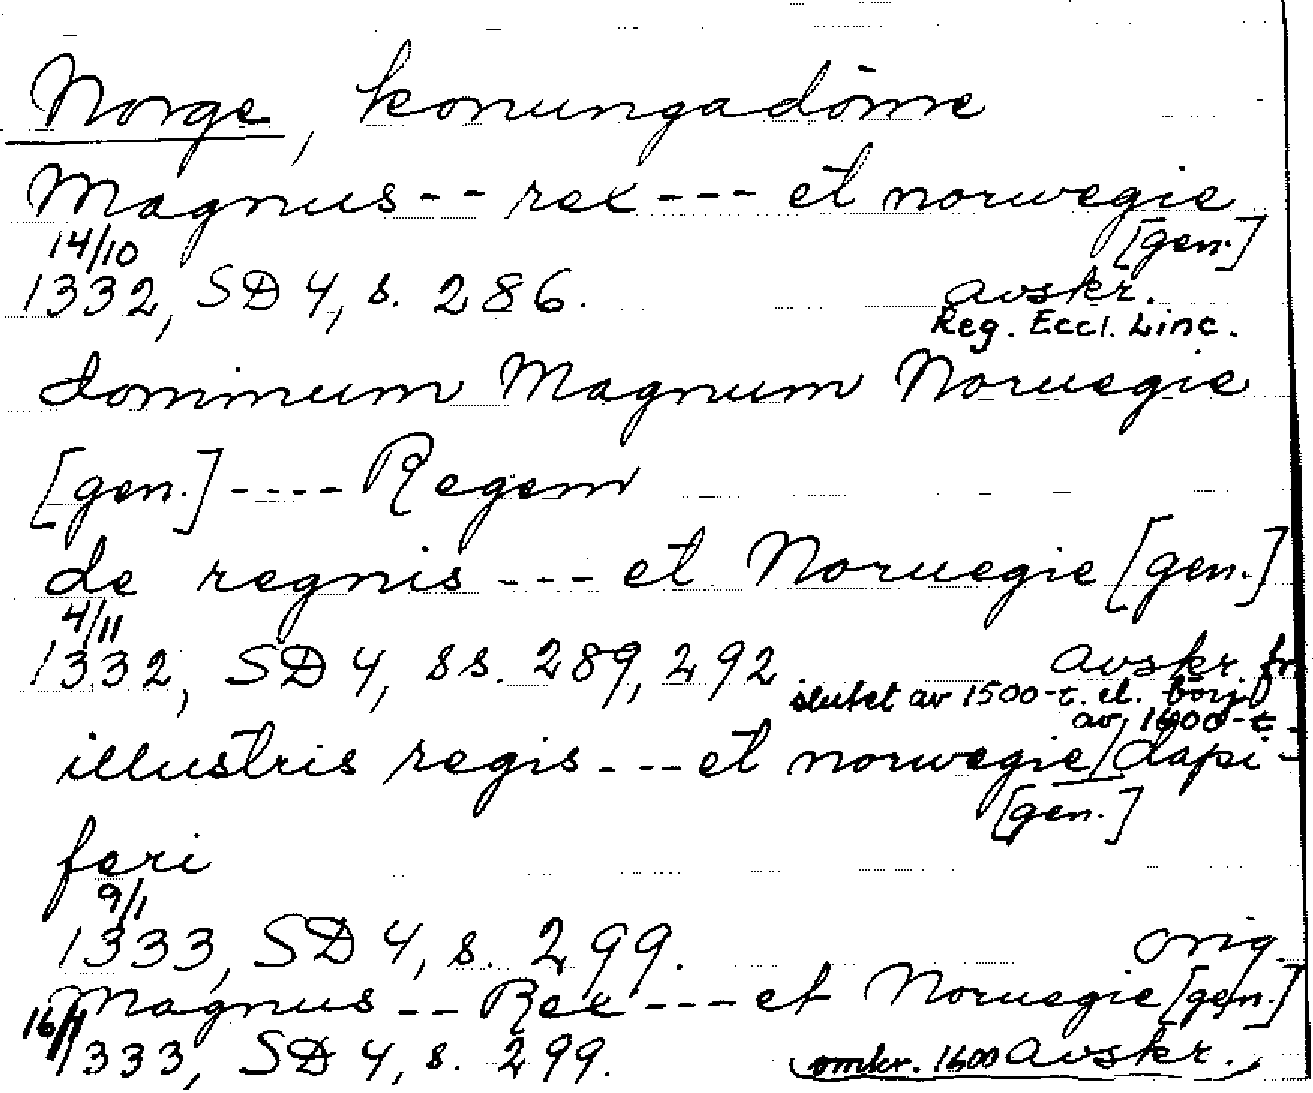 Norge, konungadöme
Magnus -- rex --- et norwegie
[gen.]
14/10
1332, SD 4, s. 286. avskr.
Reg. Eccl. Linc.
dominum Magnum Noruegie
[gen.] ---- Regem
de regnis --- et Noruegie [gen.]
4/11
1332, SD 4, ss. 289, 292 avskr. fr
slutet av 1500-t. el. börj
av 1600-t
illustris regis --- et norwegie/dapi-
[gen.]
feri
9/1
1333, SD 4, s. 299. orig.
Magnus -- Rex --- et Noruegie [gen.]
1333, SD 4, s. 299. omkr. 1600 avskr.